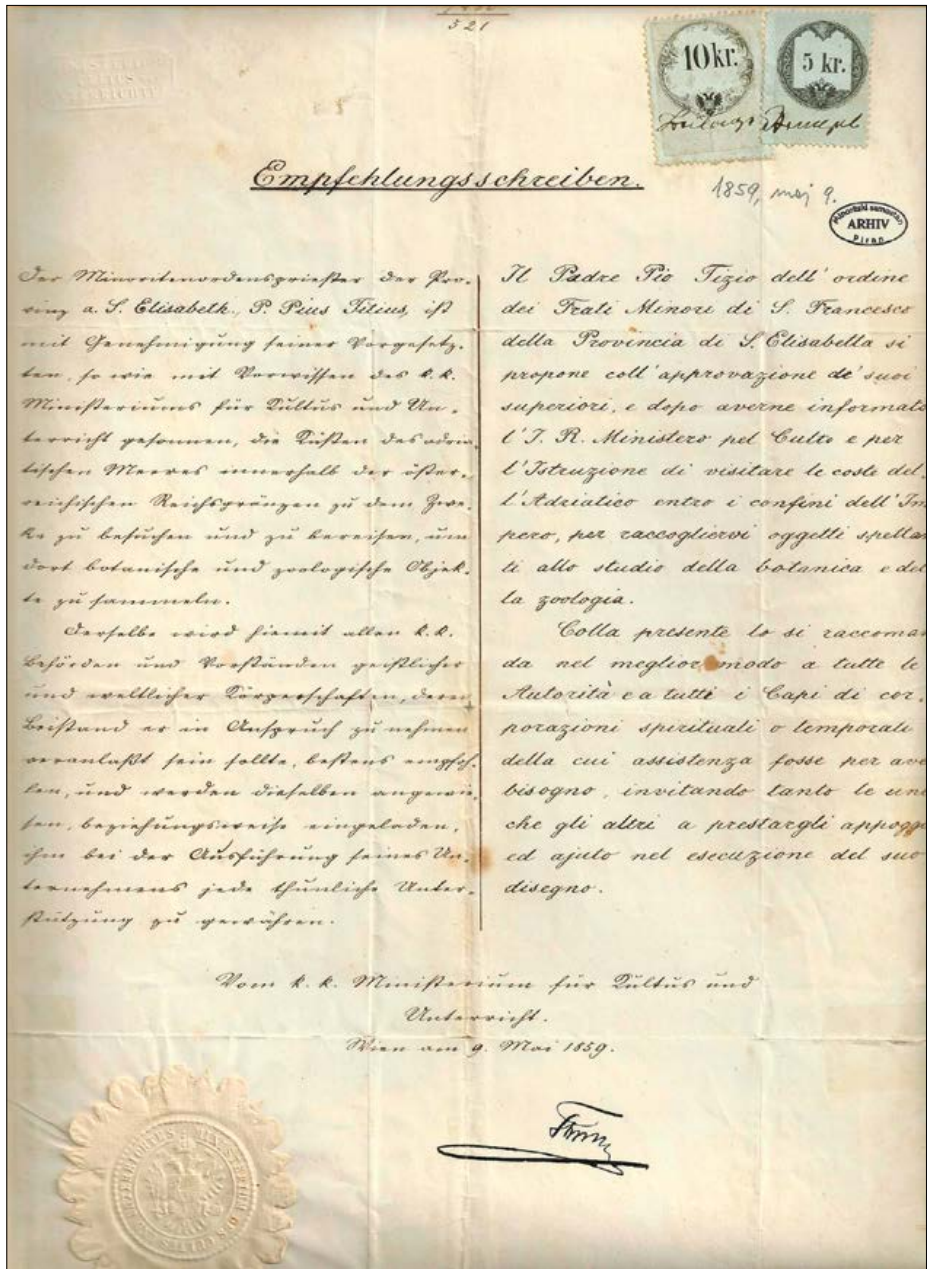 521
10 kr.
5 kr.
Empfehlungsschreiben.
1859, maj 9.
Minoritski samostan
ARHIV
Piran
Der Minoritenordenspriester der Pro-
vinz a. S. Elisabeth., P. Pius Titius, ist
mit Genehmigung seiner Vorgesetz-
ten, so wie mit Vorwissen des k. k.
Ministeriums für Kultus und Un-
terricht gesonnen, die Küsten des adria-
tischen Meeres innerhalb der öster-
reichischen Reichsgränzen zu dem Zwe-
ke zu besuchen und zu bereisen, um
dort botanische und zoologische Objek-
te zu sammeln.
Derselbe wird hiemit allen k. k.
Behörden und Vorständen geistlicher
und weltlicher Körperschaften, deren
Beistand er in Anspruch zu nehmen
veranlaßt sein sollte, bestens empfoh-
len, und werden dieselben angewie-
sen, beziehungsweise eingeladen,
ihm bei der Ausführung seines Un-
ternehmens jede thunliche Unter-
stützung zu gewähren.
Il Padre Pio Tizio dell' ordine
dei Frati Minori di S. Francesco
della Provincia di S. Elisabetta si
propone coll' approvazione de' suoi
superiori, e dopo averne informato
l' I. R. Ministero pel Culto e per
l' Istruzione di visitare le coste del-
l' Adriatico entro i confini dell' Im
pero, per raccogliervi oggetti spettan
ti allo studio della botanica e del
la zoologia.
Colla presente lo si raccoman
da nel meglior modo a tutte le
Autorità e a tutti i Capi di cor-
porazioni spirituali o temporali
della cui assistenza fosse per ave
bisogno, invitando tanto le une
che gli altri a prestargli appogg
ed ajuto nel esecuzione del suo
disegno.
Vom k. k. Ministerium für Kultus und
Unterricht.
Wien am 9. Mai 1859.